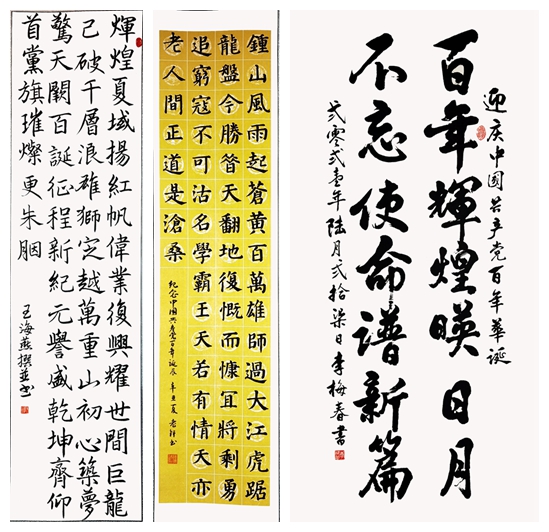 輝煌夏域揚紅帆偉業復興耀世間巨龍
己破千層浪雄獅定越萬重山初心築夢
驚天闕百誕征程新紀元譽盛乾坤齊仰
首黨旗璀燦更朱胭
王海燕撰並书
鍾山風雨起蒼黄百萬雄師過大江虎踞
龍盤今勝昝天翻地復慨而慷冝將剩勇
追窮寇不可沽名學霸王天若有情天亦
老人間正道是滄桑
紀念中国共產党百年诞辰 辛丑夏
迎庆中國共产党百年華诞
百年輝煌暎日月
不忘使命谱新篇
弍零弍壹年陸月弍拾柒日李梅春書